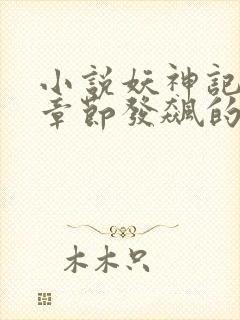 小說妖神記
章節發飆的
木木只